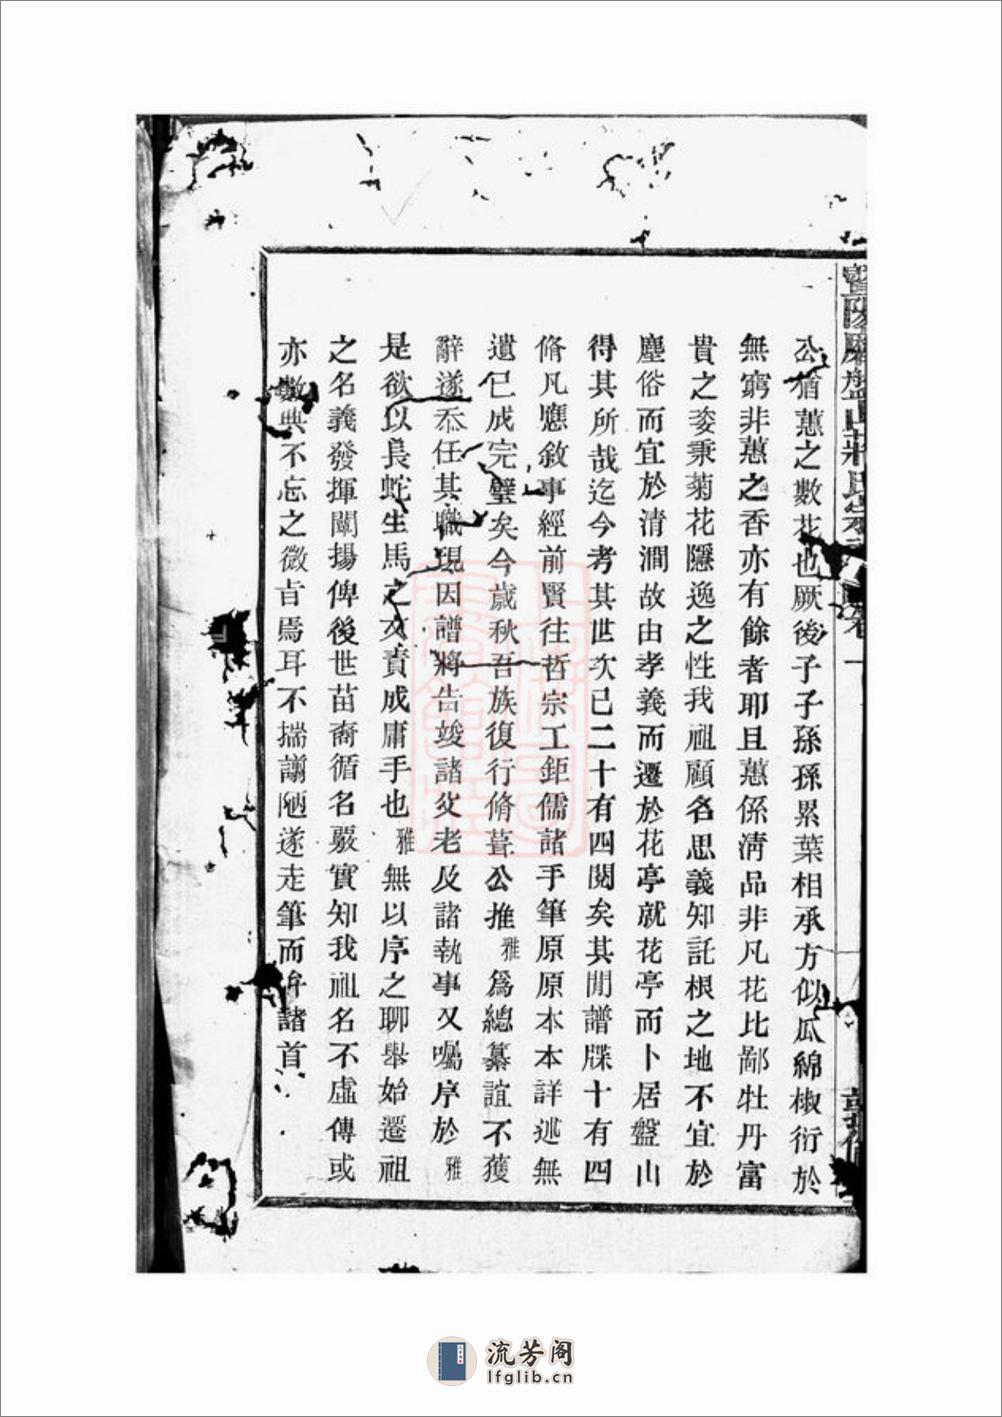 公猶蕙之數花也厥後子子孫孫累葉相承方似瓜綿椒衍於
無窮非蕙之香亦有餘者耶且蕙係淸品非凡花比鄙牡丹富
貴之姿秉菊花隱逸之性我祖顧名思義知託根之地不宜於
塵俗而宜於清澗故由孝義而遷於花亭就花亭而卜居盤山
得其所哉迄今考其世次已二十有四閱矣其閒譜牒十有四
脩凡應敘事經前賢往哲宗工鉅儒諸手筆原原本本詳述無
遺已成完璧矣今歲秋吾族復行脩葺公推雅爲總纂誼不獲
辭遂忝任其職現因譜將告竣諸父老及諸執事又囑序於雅
是欲以長蛇生馬之文責成庸手也雅無以序之聊舉始遷祖
之名義發揮闡揚俾後世苗裔循名覈實知我祖名不虛傳或
亦數典不忘之微旨焉耳不揣謭陋遂走筆而弁諸首
流芳阁
lfglib.cn